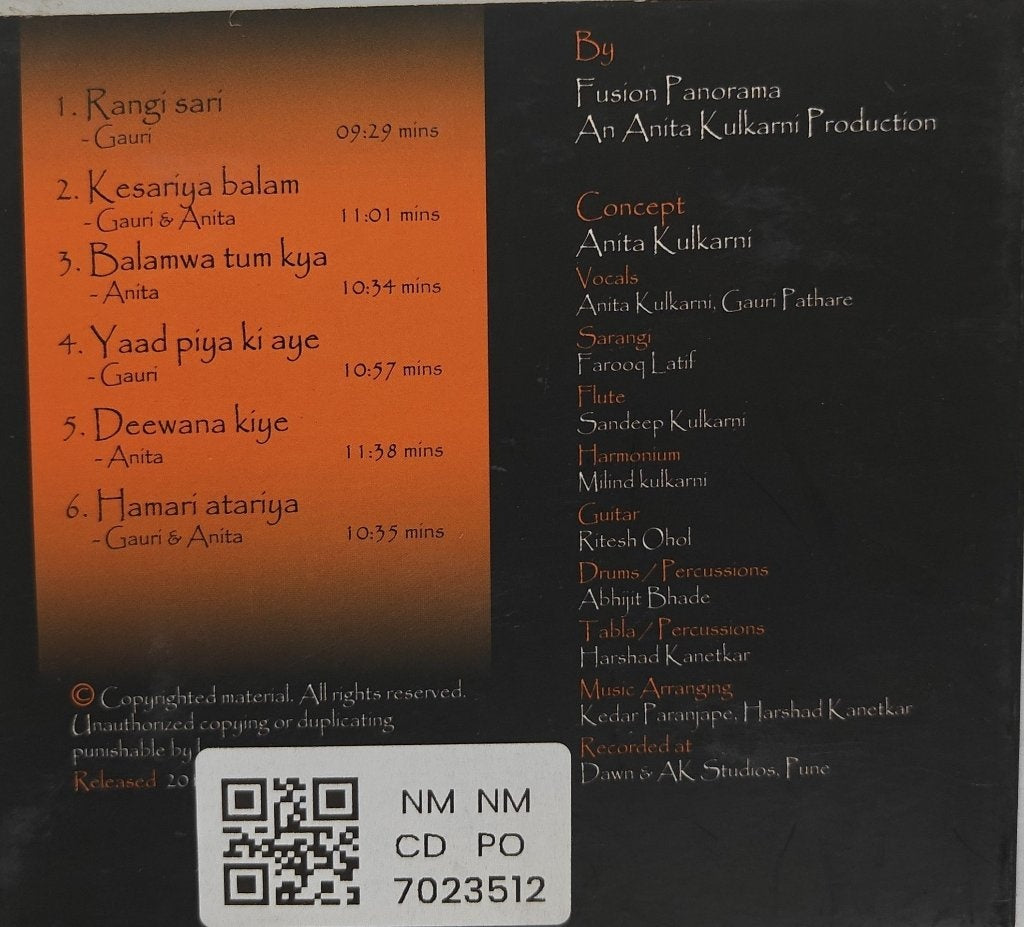 1. Rangi sari
- Gauri 09:29 mins
2. Kesariya balam
- Gauri & Anita 11:01 mins
3. Balamwa tum kya
- Anita 10:34 mins
4. Yaad piya ki aye
- Gauri 10:57 mins
5. Deewana kiye
- Anita 11:38 mins
6. Hamari atariya
- Gauri & Anita 10:35 mins
© Copyrighted material. All rights reserved.
Unauthorized copying or duplicating
punishable by
Released 20
By
Fusion Panorama
An Anita Kulkarni Production
Concept
Anita Kulkarni
Vocals
Anita Kulkarni, Gauri Pathare
Sarangi
Farooq Latif
Flute
Sandeep Kulkarni
Harmonium
Milind kulkarni
Guitar
Ritesh Ohol
Drums / Percussions
Abhijit Bhade
Tabla / Percussions
Harshad Kanetkar
Music Arranging
Kedar Paranjape, Harshad Kanetkar
Recorded at
Dawn & AK Studios, Pune
NM NM
CD PO
7023512